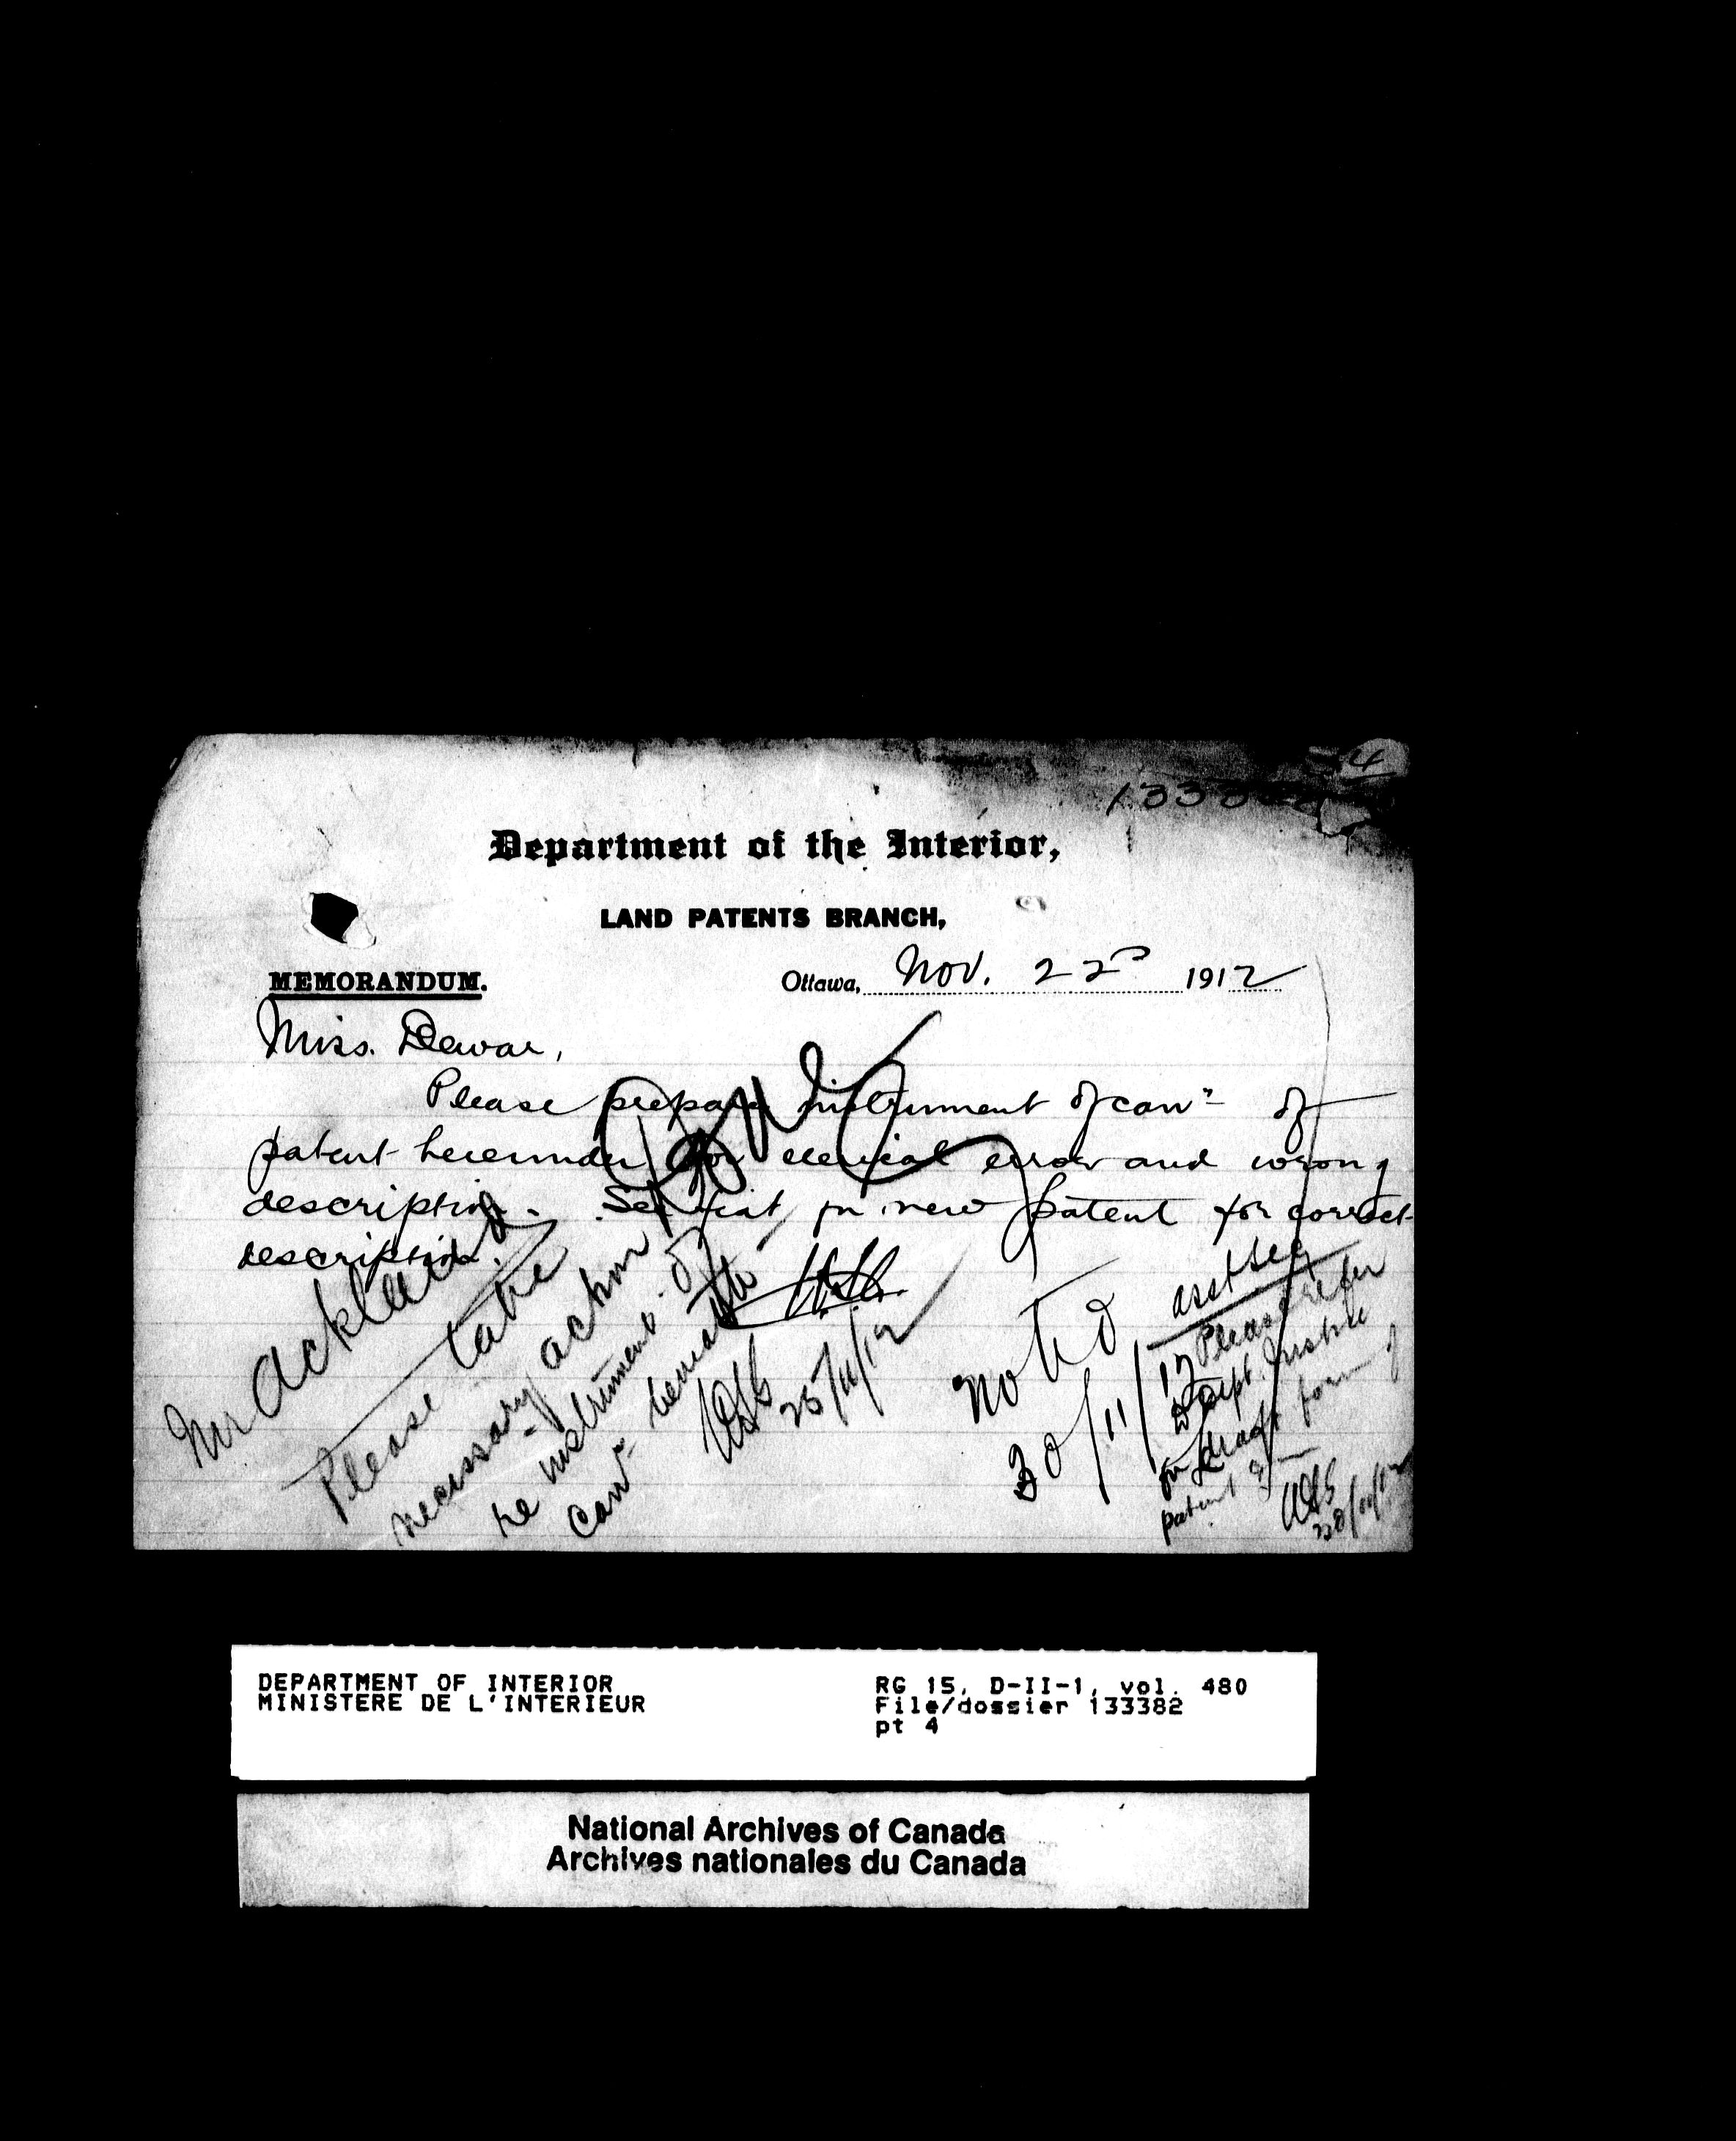 4
1333
Department of the Interior,
LAND PATENTS BRANCH,
MEMORANDUM.
Ottawa, Nov. 22ᴰ 1912
Miss. Dewar,
Please prepare instrument of canⁿ of
patent hereunder for clerical error and wrong
description. See fiat for new patent for correct
description.
Mr Ackland
Please take
necessary action
re instrument of
canⁿ herewith
25/11/12
Noted
30/11/12
asst Secy
Please refer
Dept. Justice
for draft form of
patent
28/11/12
DEPARTMENT OF INTERIOR
MINISTERE DE L'INTERIEUR
RG 15, D-II-1, vol. 480
File/dossier 133382
pt 4
National Archives of Canada
Archives nationales du Canada